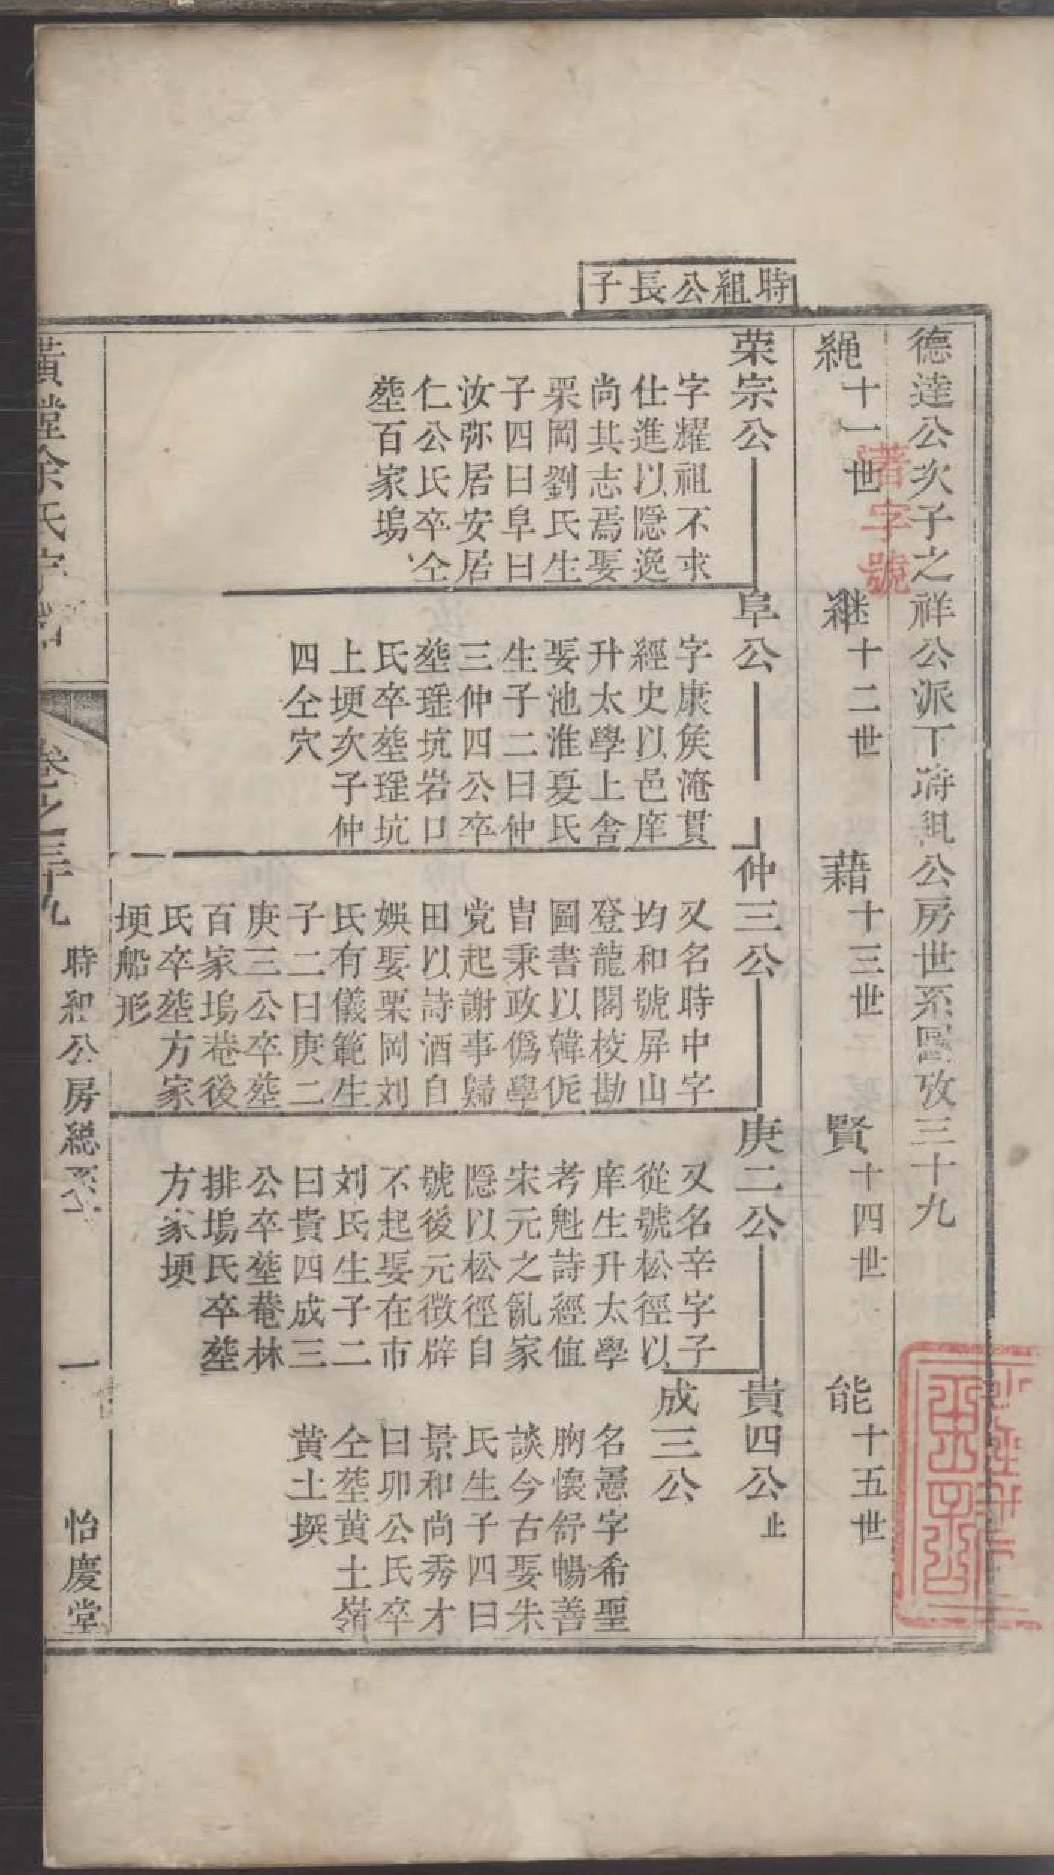 時組公長子
德逹公次子之祥公派下時組公房世系圖攷三十九
著字號
繩十一世
継十二世
藉十三世
賢十四世
能十五世
荣宗公
字耀祖不求
仕進以隠逸
尚其志焉娶
栗岡劉氏生
子四曰阜曰
汝弥居安居
仁公氏卒仝
塟百家塢
阜公
字康矦淹貫
經史以邑庠
升太學上舍
娶池淮夏氏
生子二曰仲
三仲四公卒
塟瑶坑岩口
氏卒塟瑶坑
上埂次子仲
四仝穴
仲三公
又名時中字
均和號屏山
登龍閣校勘
圖書以韓侂
胄秉政僞學
党起謝事歸
田以詩酒自
娛娶栗岡刘
氏有儀範生
子二曰庚二
庚三公卒塟
百家塢菴後
氏卒塟方家
埂船形
庚二公
又名辛字子
從號松徑以
庠生升太學
考魁詩經值
宋元之亂家
隠以松徑自
號後元徴辟
不起娶在市
刘氏生子二
曰貴四成三
公卒塟菴林
排塢氏卒塟
方家埂
貴四公止
成三公
名慿字希聖
胸懷舒暢善
談今古娶朱
氏生子四曰
景和尚秀才
曰卯公氏卒
仝塟黄土嶺
黄土塸
余氏宗
卷之三十九
時組公房総系
一
怡慶堂